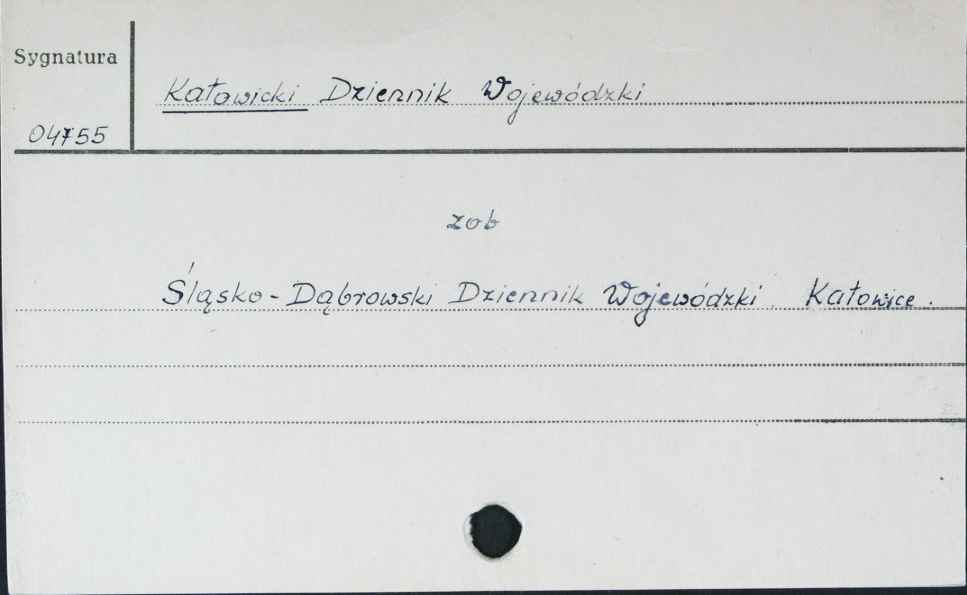 Sygnatura
Katowicki Dziennik Wojewódzki
04755
zob
Śląsko-Dąbrowski Dziennik Wojewódzki. Katowice.